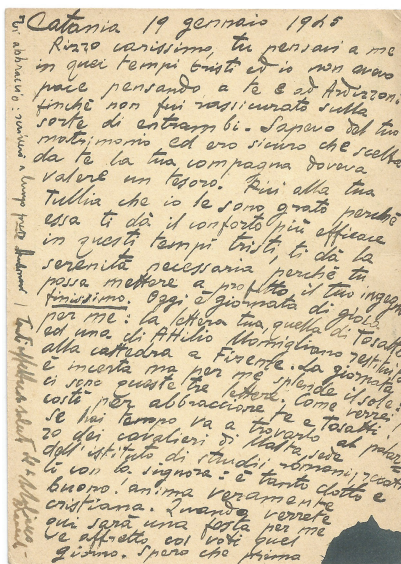 Catania 19 gennaio 1945
Rizzo carissimo, tu pensavi a me
in quei tempi tristi ed io non avevo
pace pensando a te e ad Ardizzoni
finché non fui rassicurato sulla
sorte di entrambi. Sapevo del tuo
matrimonio ed ero sicuro che scelta
da te la tua compagna doveva
valere un tesoro. Dici alla tua
Tullia che io le sono grato perché
essa ti dà il conforto più efficace
in questi tempi tristi, ti dà la
serenità necessaria perché tu
possa mettere a profitto il tuo ingegno
finissimo. Oggi è giornata di gioia
per me: la lettera tua, quella di Tosatti
ed una di Attilio Momigliano restituito
alla cattedra a Firenze. La giornata
è incerta ma per me splende il sole:
ci sono queste tre lettere. Come verrei
costì per abbracciare te e Tosatti.
Se hai tempo va a trovarlo al palaz-
zo dei cavalieri di Malta, sede
dell'istituto di studii romani; recati
ti con la signora: è tanto dotto e
buono! anima veramente
cristiana. Quando verrete
qui sarà una festa per me
Se affretto coi voti quel
giorno. Spero che prima
vi abbracio: scriverò a lungo